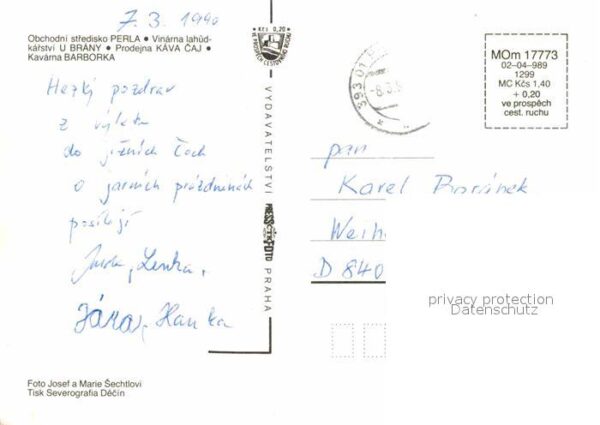 7.3.1990
Obchodní středisko PERLA • Vinárna lahůd-
kářství U BRÁNY • Prodejna KÁVA ČAJ •
Kavárna BARBORKA
Kčs 0,20
VE PROSPĚCH CESTOVNÍHO RUCHU
393 01
-8.3.
MOm 17773
02-04-989
1299
MC Kčs 1,40
+ 0,20
ve prospěch
cest. ruchu
Hezký pozdrav
z výletu
do jižních Čech
o jarních prázdninách
posílají
Jarda, Lenka,
Hanka
VYDAVATELSTVÍ PRESSFOTO PRAHA
pan
Karel
Weih
D 840
privacy protection
Datenschutz
Foto Josef a Marie Šechtlovi
Tisk Severografia Děčín